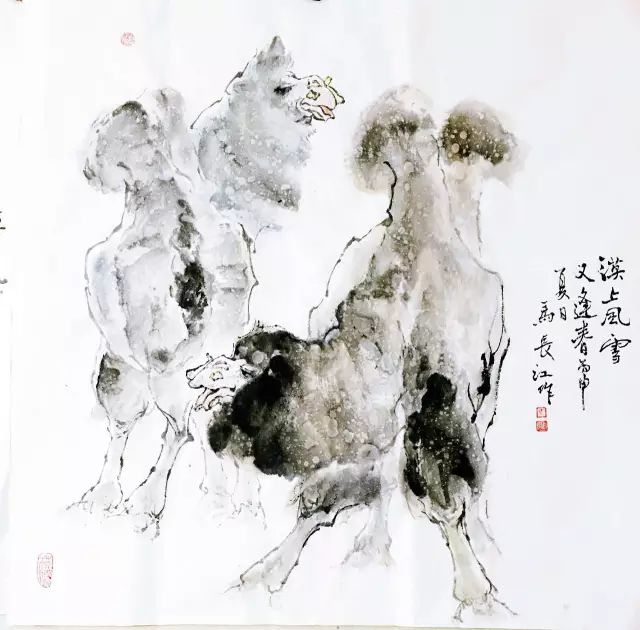 漠上风雪
又逢春丙申
夏日
马长江作